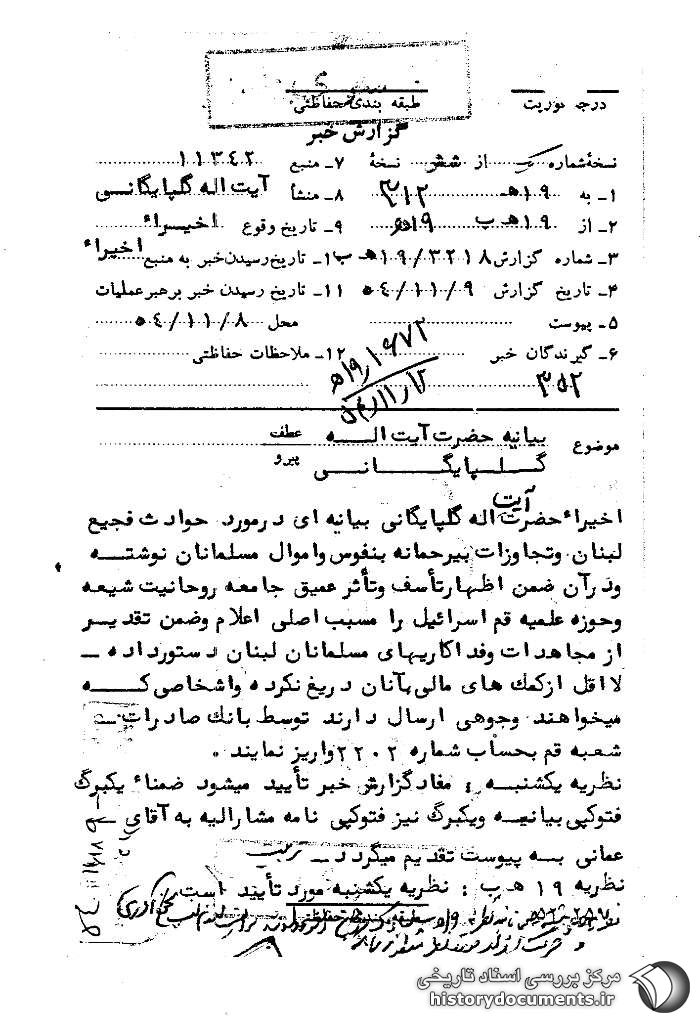 درجه فوریت
طبقه بندی حفاظتی
گزارش خبر
نسخهٔ شماره یک از شش نسخهٔ
۷ـ منبع ۱۱۳۴۲
۱ـ به ۱۹هـ ۳۱۲
۸ـ منشأ آیت اله گلپایگانی
۲ـ از ۱۹هـ ب
۹ـ تاریخ وقوع اخیراء
۳ـ شماره گزارش ۱۹/۳۲۱۸هـ ب
۱۰ـ تاریخ رسیدن خبر به منبع اخیراء
۴ـ تاریخ گزارش ۵۴/۱۱/۹
۱۱ـ تاریخ رسیدن خبر برهبر عملیات
۵ـ پیوست
محل ۵۴/۱۱/۸
۶ـ گیرندگان خبر
۱۲ـ ملاحظات حفاظتی
۳۵۲
موضوع بیانیه حضرت آیت الـــه
عطف
گـلـپایگـــانـــی
پیرو
اخیراء حضرت آیت اله گلپایگانی بیانه ای درمورد حوادث فجیع
لبنان وتجاوزات بیرحمانه بنفوس واموال مسلمانان نوشتـــه
ودرآن ضمن اظهارتأسف وتأثر عمیق جامعه روحانیت شیعه
وحوزه علمیه قم اسرائیل را مسبب اصلی اعلام وضمن تقدیـــر
از مجاهدات وفداکاریهای مسلمانان لبنان دستورداده ـ
لااقل ازکمك های مالی بآنان دریغ نکرده واشخاصی کـــه
میخواهند وجوهی ارسال دارند توسط بانك صادرات ـ
شعبه قم بحساب شماره ۲۲۰۲ واریز نمایند .
نظریه یکشنبـــه : مفادگزارش خبر تأیید میشود ضمناء یکبرگ
فتوکپی بیانیـه ویکبرگ نیز فتوکپی نامه مشارالیه به آقای ـ
عمانی بـــه پیوست تقدیم میگردد ـ
نظریه ۱۹ هـ ب : نظریه یکشنبه مورد تأیید است
طبقه بندی حفاظتی
مرکز بررسی اسناد تاریخی
historydocuments.ir